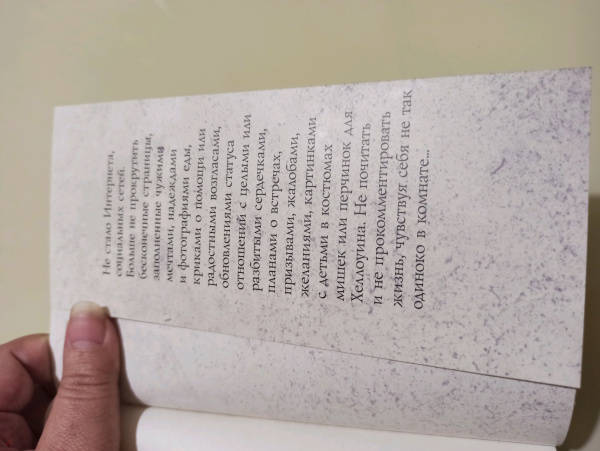 Не стало Интернета,
социальных сетей.
Больше не прокрутить
бесконечные страницы,
заполненные чужими
мечтами, надеждами
и фотографиями еды,
криками о помощи или
радостными возгласами,
обновлениями статуса
отношений с целыми или
разбитыми сердечками,
планами о встречах,
призывами, жалобами,
желаниями, картинками
с детьми в костюмах
мишек или перчинок для
Хеллоуина. Не почитать
и не прокомментировать
жизнь, чувствуя себя не так
одиноко в комнате...